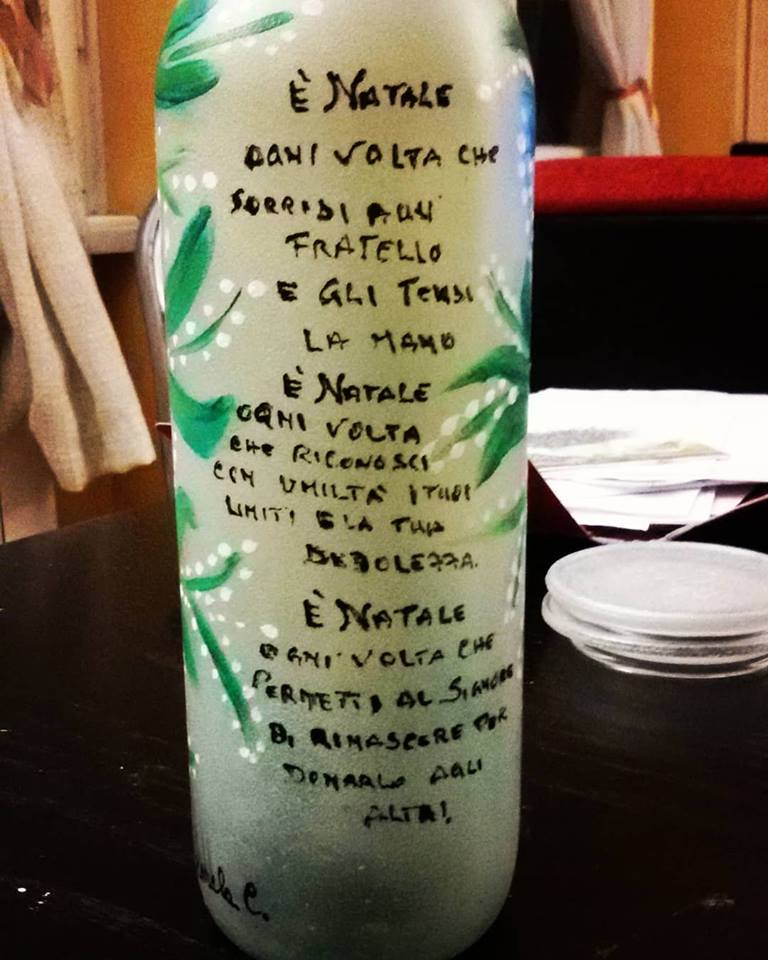 È NATALE
OGNI VOLTA CHE
SORRIDI AGLI
FRATELLO
E GLI TENDI
LA MANO
È NATALE
OGNI VOLTA
CHE RICONOSCI
CON UMILTÀ I TUOI
LIMITI E LA TUA
DEBOLEZZA.
È NATALE
OGNI VOLTA CHE
PERMETTI AL SIGNORE
DI RINASCERE PER
DONARLO AGLI
ALTRI.
C.